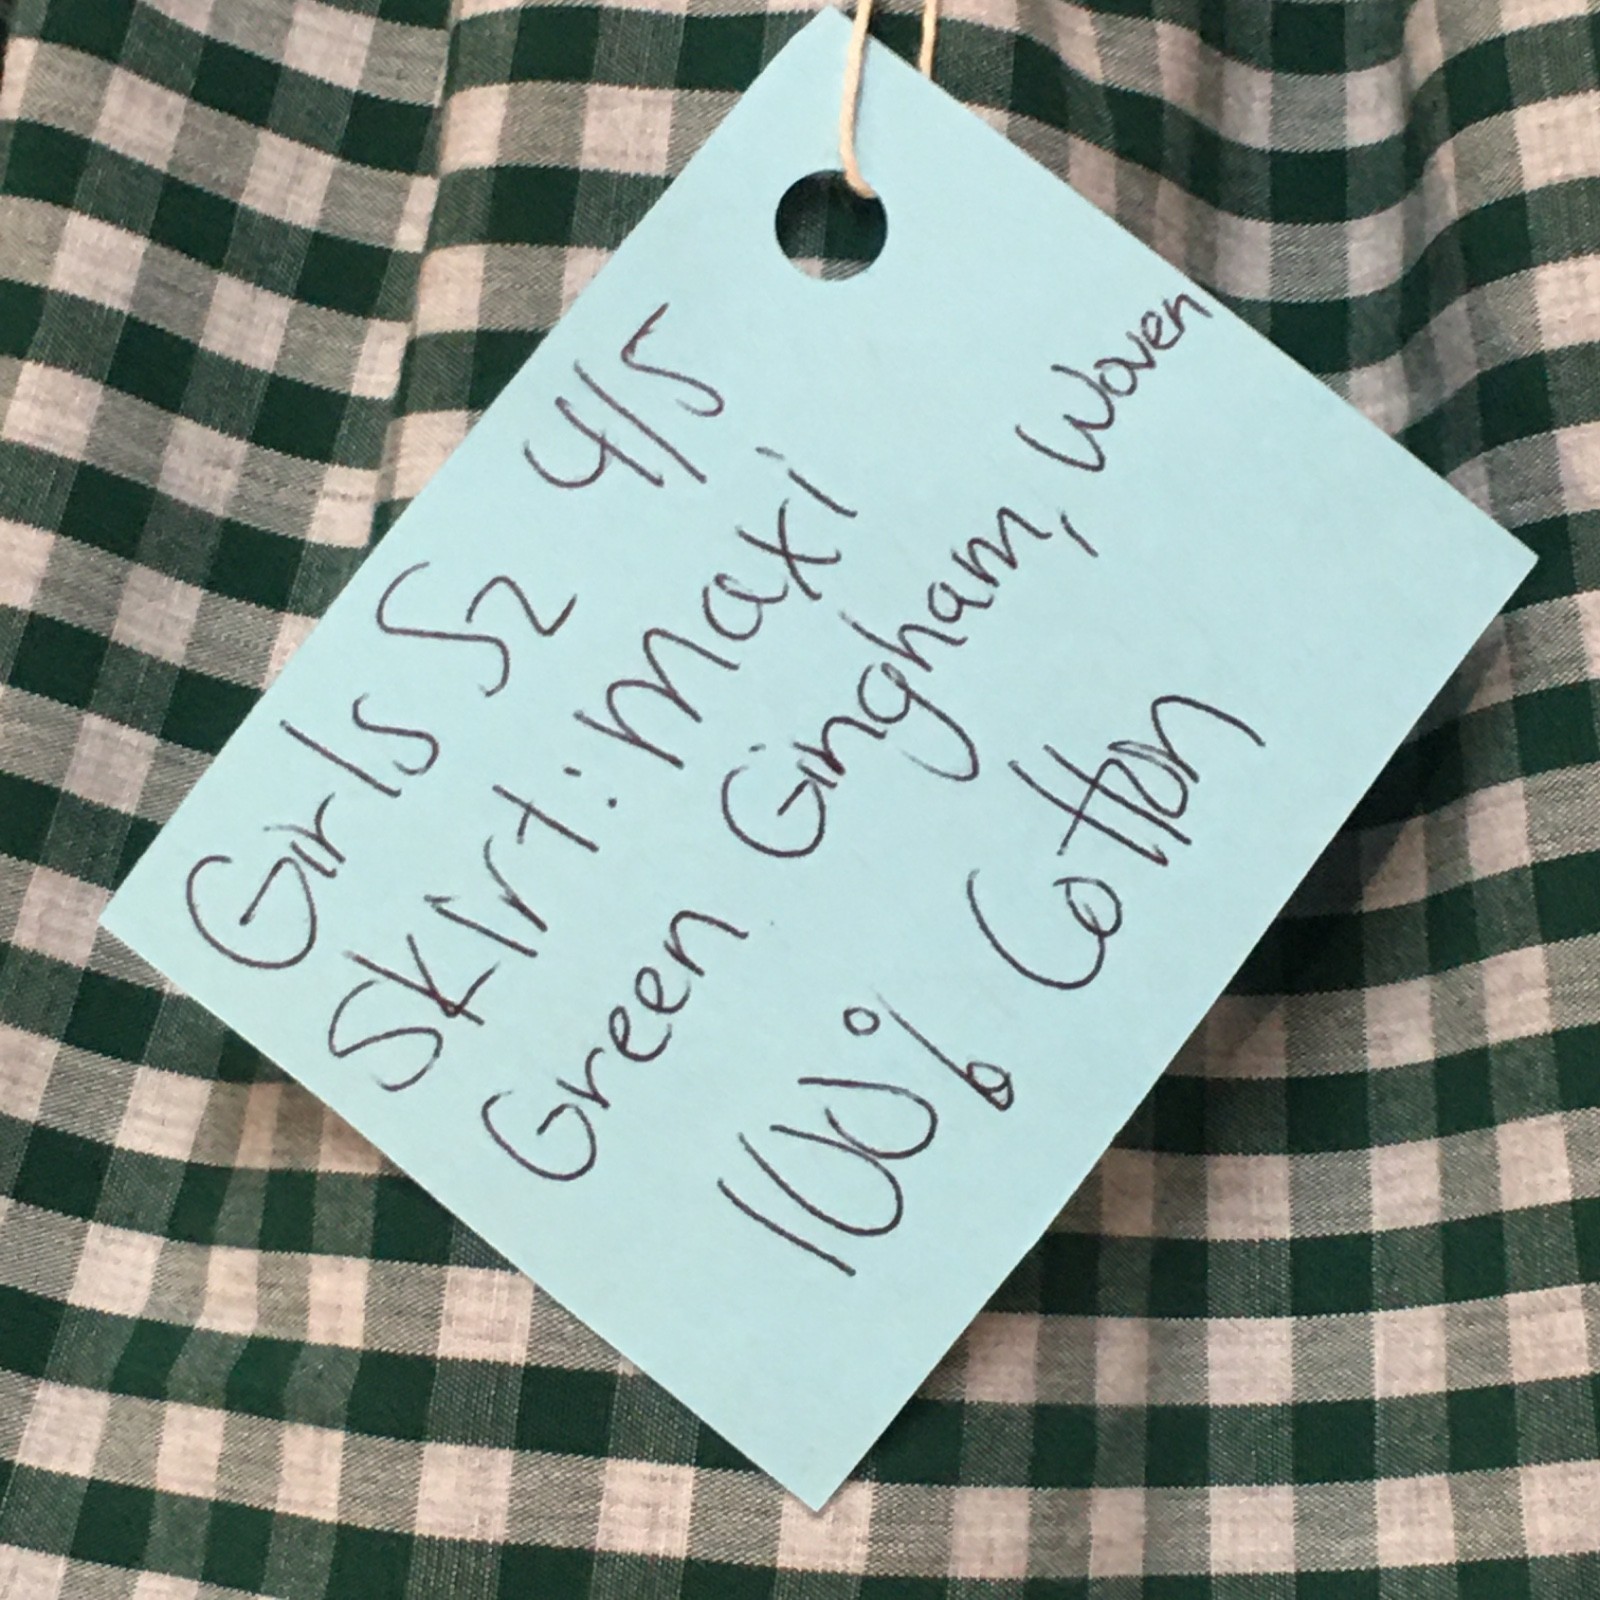 Girls Sz 4/5
Skirt: Maxi
Green Gingham, Woven
100% Cotton